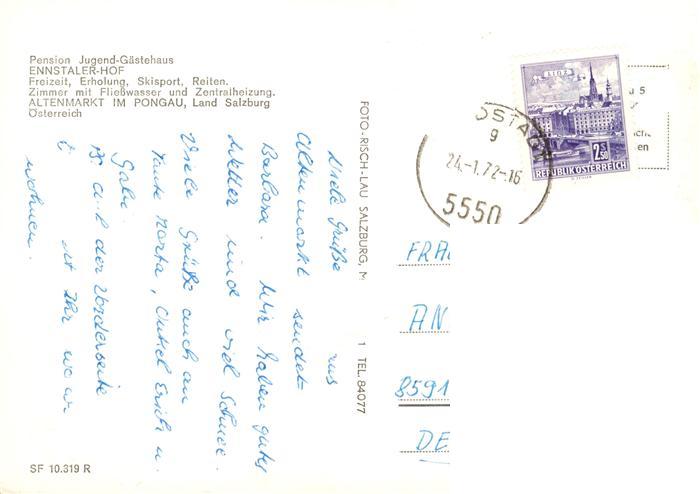 Pension Jugend-Gästehaus
ENNSTALER-HOF
Freizeit, Erholung, Skisport, Reiten.
Zimmer mit Fließwasser und Zentralheizung.
ALTENMARKT IM PONGAU, Land Salzburg
Österreich
Viele Grüße aus
Altenmarkt sendet
Barbara. Wir haben gutes
Wetter und viel Schnee.
Viele Grüße auch an
Tante Marta, Onkel Erich u.
Gabi.
B. a. d. der Vorderseite
ist Ihr wo wir
wohnen.
SF 10.319 R
FOTO-RISCH-LAU SALZBURG, M
1 TEL. 84077
LINZ
2.50
REPUBLIK ÖSTERREICH
OSTA
g
24.-1.72-16
5550
u 5
en
FRA
AN
8591
DE